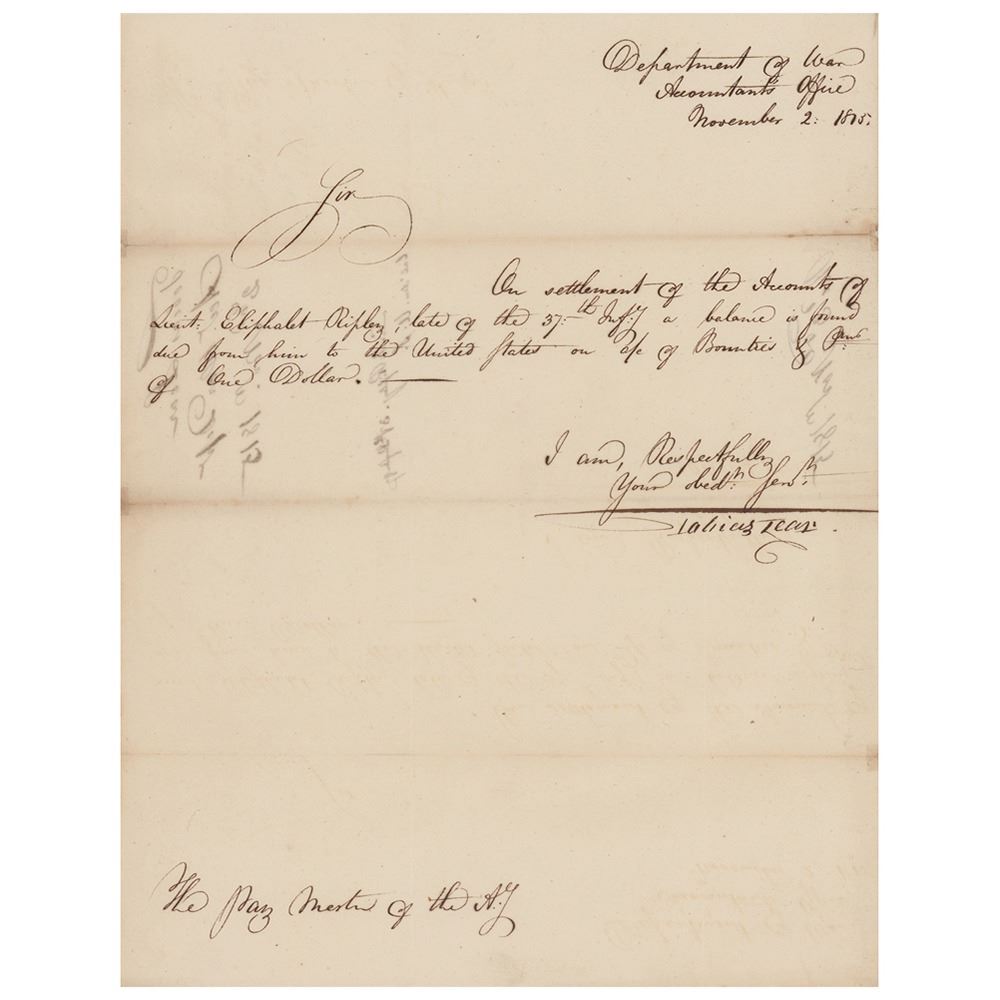 Department of War
Accountant's Office
November 2: 1815.
Sir
On settlement of the Accounts of
Lieut: Eliphalet Ripley, late of the 37:th Inf:y a balance is found
due from him to the United States on a/c of Bounties & Pms
of One Dollar.
I am, Respectfully
Your obedt: Servt:
Tobias Lear.
The Pay Master of the A:y